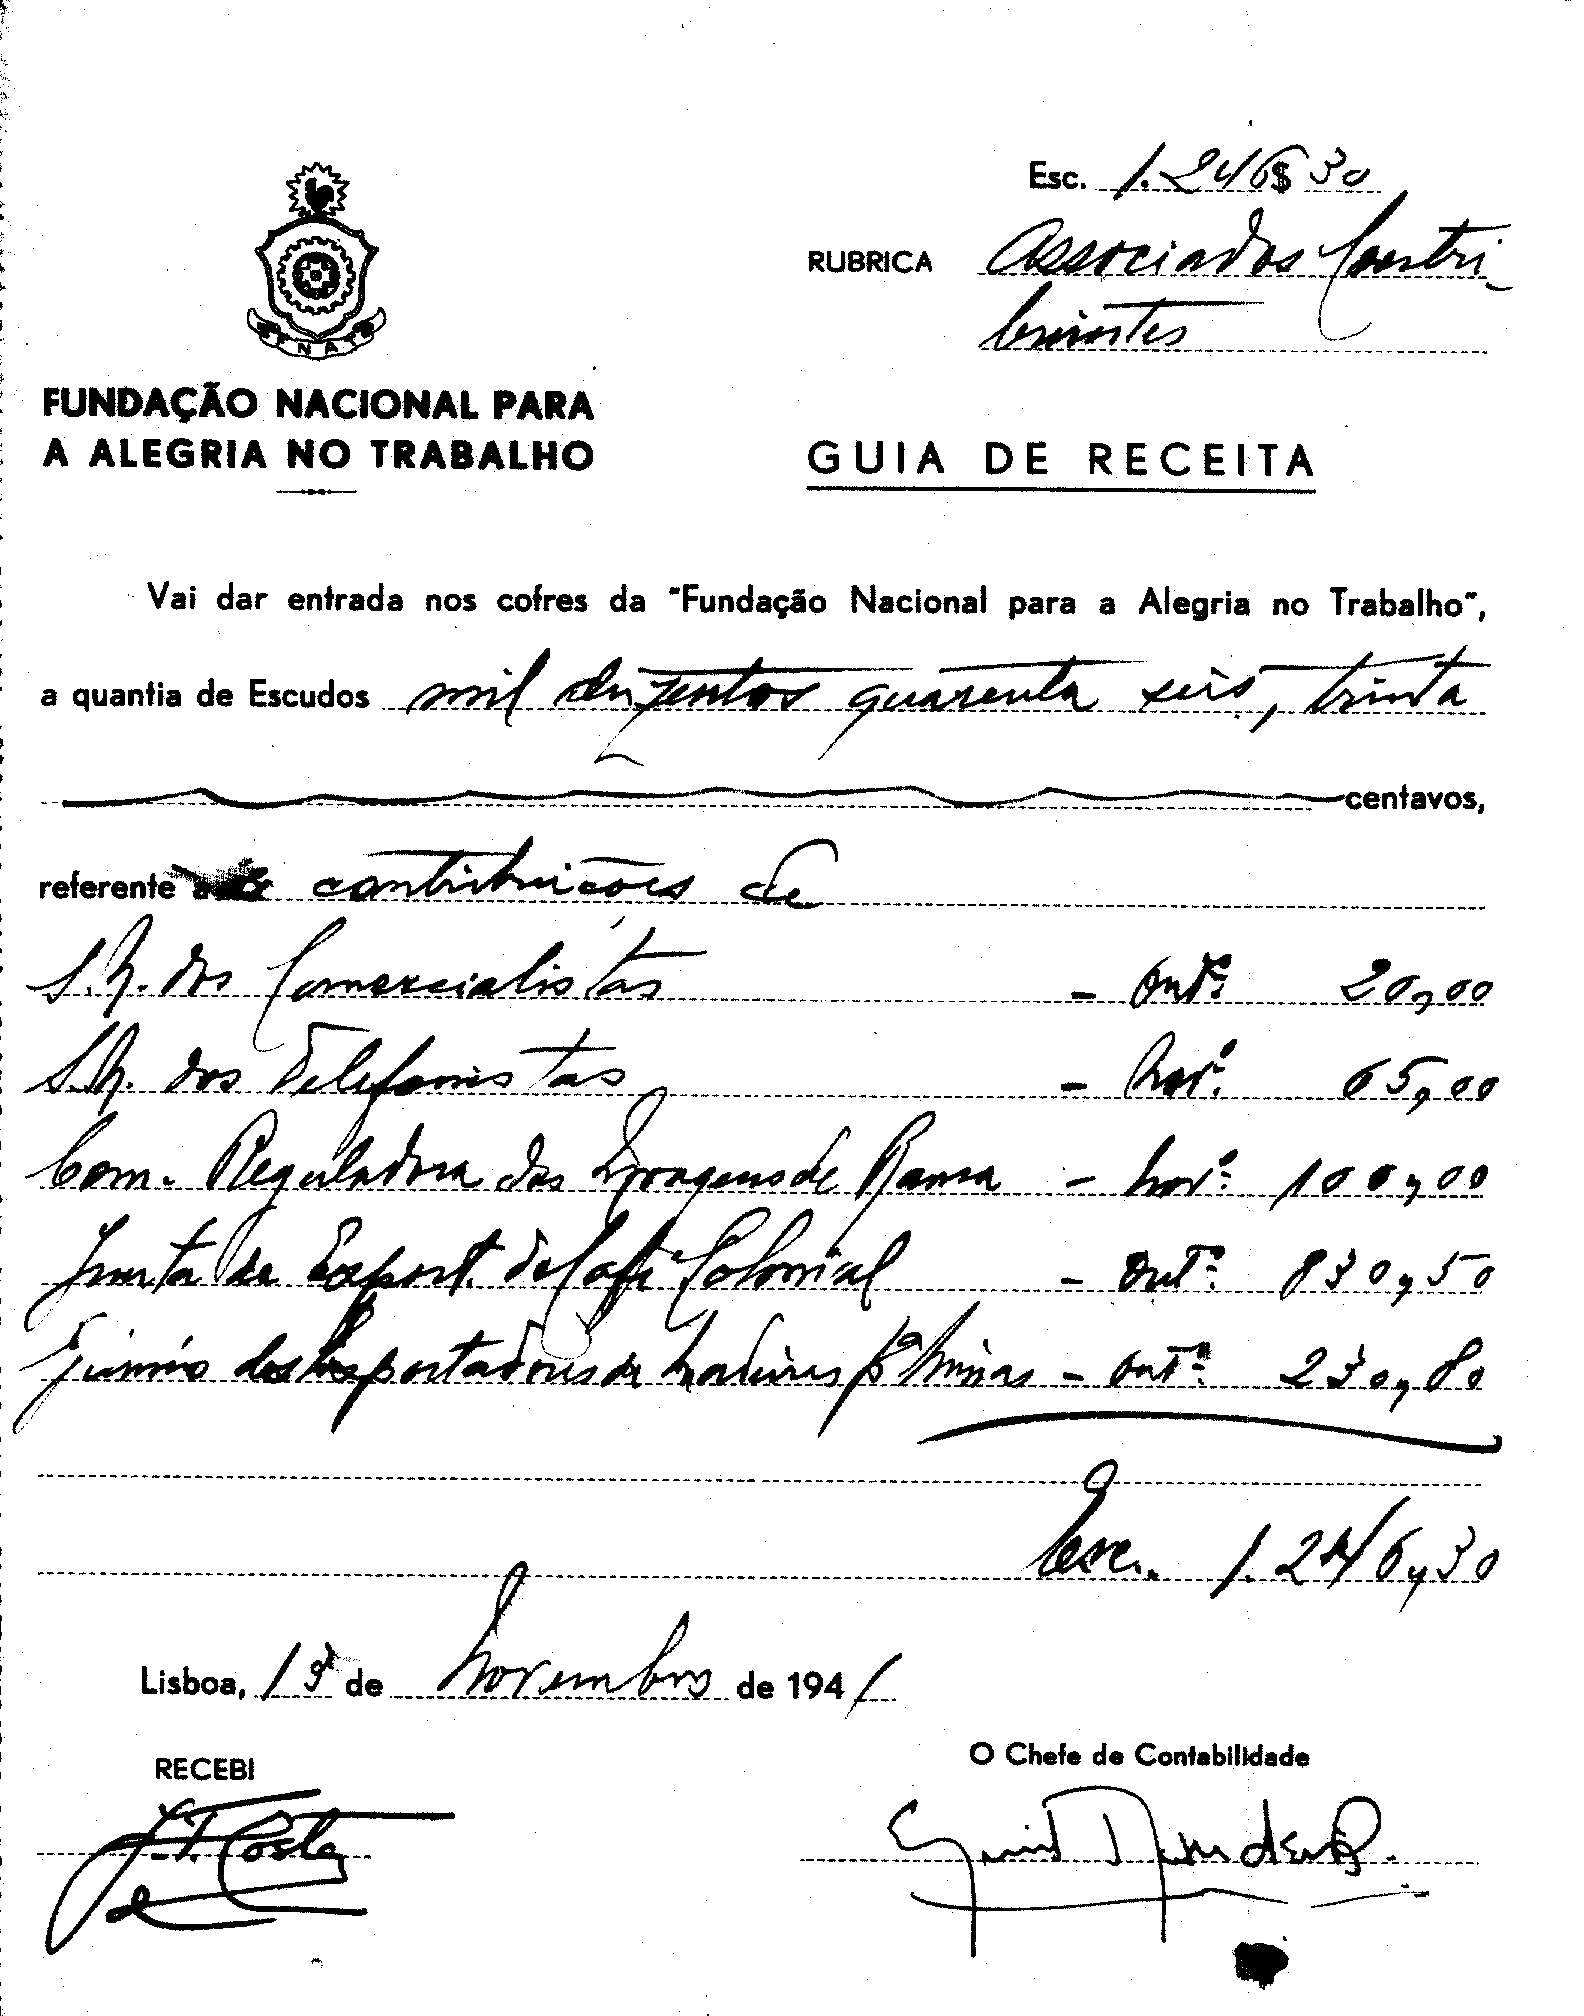 Esc. 1.246$30
RUBRICA Associados Contri-
buintes
FNAT
FUNDAÇÃO NACIONAL PARA
A ALEGRIA NO TRABALHO
GUIA DE RECEITA
Vai dar entrada nos cofres da "Fundação Nacional para a Alegria no Trabalho",
a quantia de Escudos mil duzentos quarenta seis, trinta
centavos,
referente a contribuições de
S.N. dos Comercialistas - Outº. 20,00
S.N. dos Telefonistas - Novº. 65,00
Com. Reguladora das Moagens de Rama - Novº. 100,00
Junta de Export. de Café Colonial - Outº. 830,50
Grémio dos Exportadores de Madeiras pª Minas - Outº. 230,80
Esc. 1.246,30
Lisboa, 13 de Novembro de 1941
RECEBI
O Chefe de Contabilidade
J.T. Costa